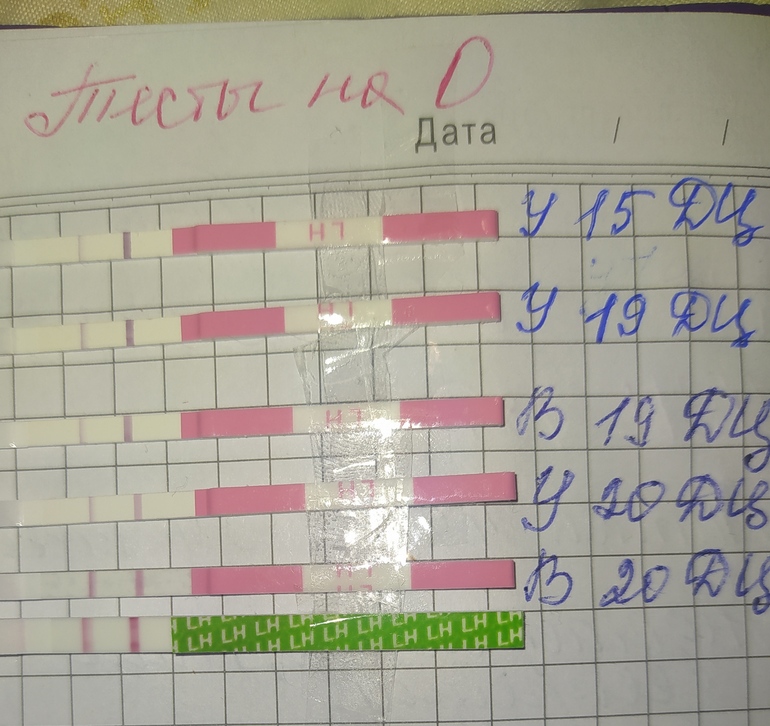 Тесты на О
Дата / /
LH У 15 ДЦ
LH У 19 ДЦ
LH В 19 ДЦ
LH У 20 ДЦ
LH LH В 20 ДЦ
LH LH LH LH LH LH LH LH LH